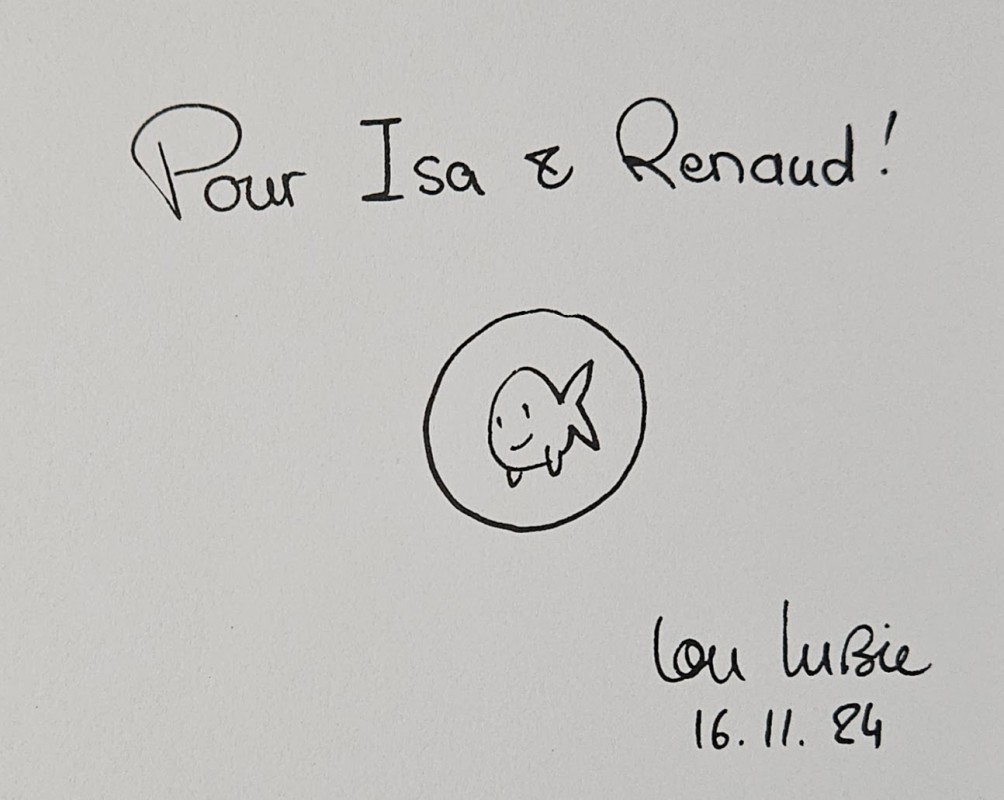 Pour Isa & Renaud!
Lou Lubie
16.11.24